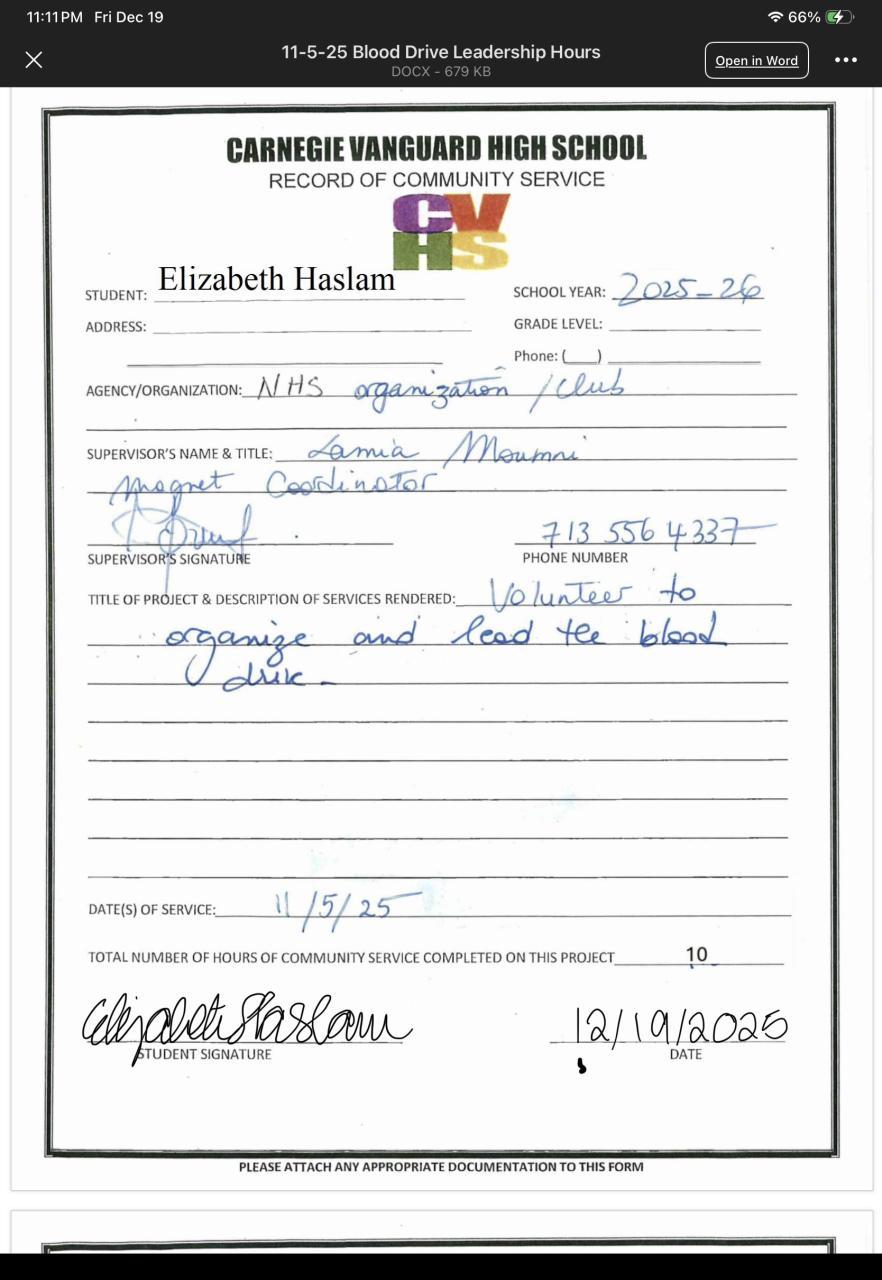 11:11 PM Fri Dec 19
66%
11-5-25 Blood Drive Leadership Hours
DOCX - 679 KB
Open in Word
CARNEGIE VANGUARD HIGH SCHOOL
RECORD OF COMMUNITY SERVICE
CV
HS
STUDENT: Elizabeth Haslam
SCHOOL YEAR: 2025-26
ADDRESS:
GRADE LEVEL:
Phone: (___)
AGENCY/ORGANIZATION: NHS organization / club
SUPERVISOR'S NAME & TITLE: Lamia Moumni
Magnet Coordinator
713 556 4337
SUPERVISOR'S SIGNATURE
PHONE NUMBER
TITLE OF PROJECT & DESCRIPTION OF SERVICES RENDERED: Volunteer to
organize and lead the blood
drive -
DATE(S) OF SERVICE: 11/5/25
TOTAL NUMBER OF HOURS OF COMMUNITY SERVICE COMPLETED ON THIS PROJECT 10
Elizabeth Haslam
12/19/2025
STUDENT SIGNATURE
DATE
PLEASE ATTACH ANY APPROPRIATE DOCUMENTATION TO THIS FORM